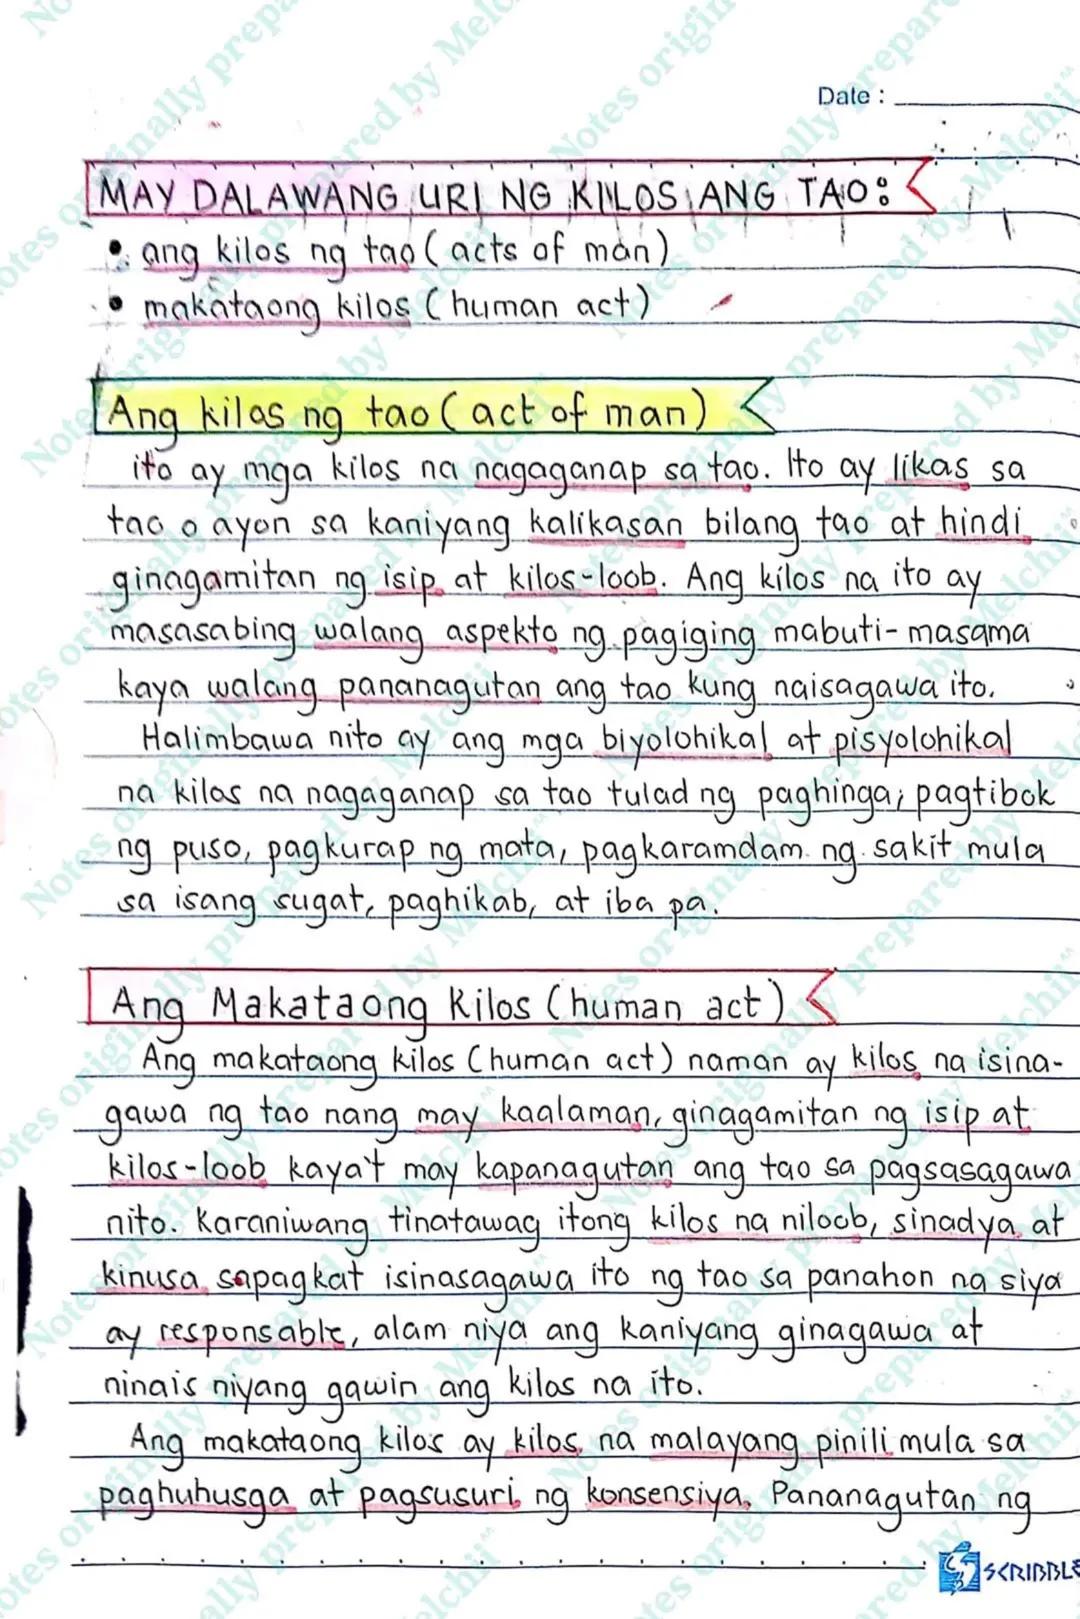 Date :
MAY DALAWANG URI NG KILOS ANG TAO:
• ang kilos ng tao (acts of man)
• makataong kilos (human act)
Ang kilos ng tao (act of man)
ito ay mga kilos na nagaganap sa tao. Ito ay likas sa
tao o ayon sa kaniyang kalikasan bilang tao at hindi
ginagamitan ng isip at kilos-loob. Ang kilos na ito ay
masasabing walang aspekto ng pagiging mabuti-masama
kaya walang pananagutan ang tao kung naisagawa ito.
Halimbawa nito ay ang mga biyolohikal at pisyolohikal
na kilos na nagaganap sa tao tulad ng paghinga, pagtibok
ng puso, pagkurap ng mata, pagkaramdam ng sakit mula
sa isang sugat, paghikab, at iba pa.
Ang Makataong Kilos (human act)
Ang makataong kilos (human act) naman ay kilos na isina-
gawa ng tao nang may kaalaman, ginagamitan ng isip at
kilos-loob kaya't may kapanagutan ang tao sa pagsasagawa
nito. Karaniwang tinatawag itong kilos na niloob, sinadya at
kinusa sapagkat isinasagawa ito ng tao sa panahon na siya
ay responsable, alam niya ang kaniyang ginagawa at
ninais niyang gawin ang kilos na ito.
Ang makataong kilos ay kilos na malayang pinili mula sa
paghuhusga at pagsusuri ng konsensiya. Pananagutan ng
SCRIBBLE
Notes originally prepared by Melchii^^